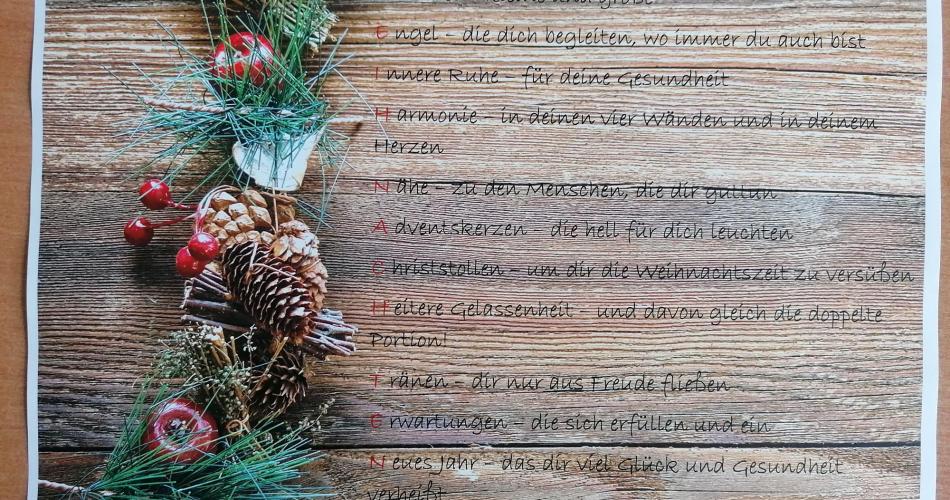 und große
E ngel – die dich begleiten, wo immer du auch bist
I nnere Ruhe – für deine Gesundheit
H armonie – in deinen vier Wänden und in deinem
Herzen
N ähe – zu den Menschen, die dir guttun
A dventskerzen – die hell für dich leuchten
C hriststollen – um dir die Weihnachtszeit zu versüßen
H eitere Gelassenheit – und davon gleich die doppelte
Portion!
T ränen – dir nur aus Freude fließen
E rwartungen – die sich erfüllen und ein
N eues Jahr – das dir viel Glück und Gesundheit
verheißt